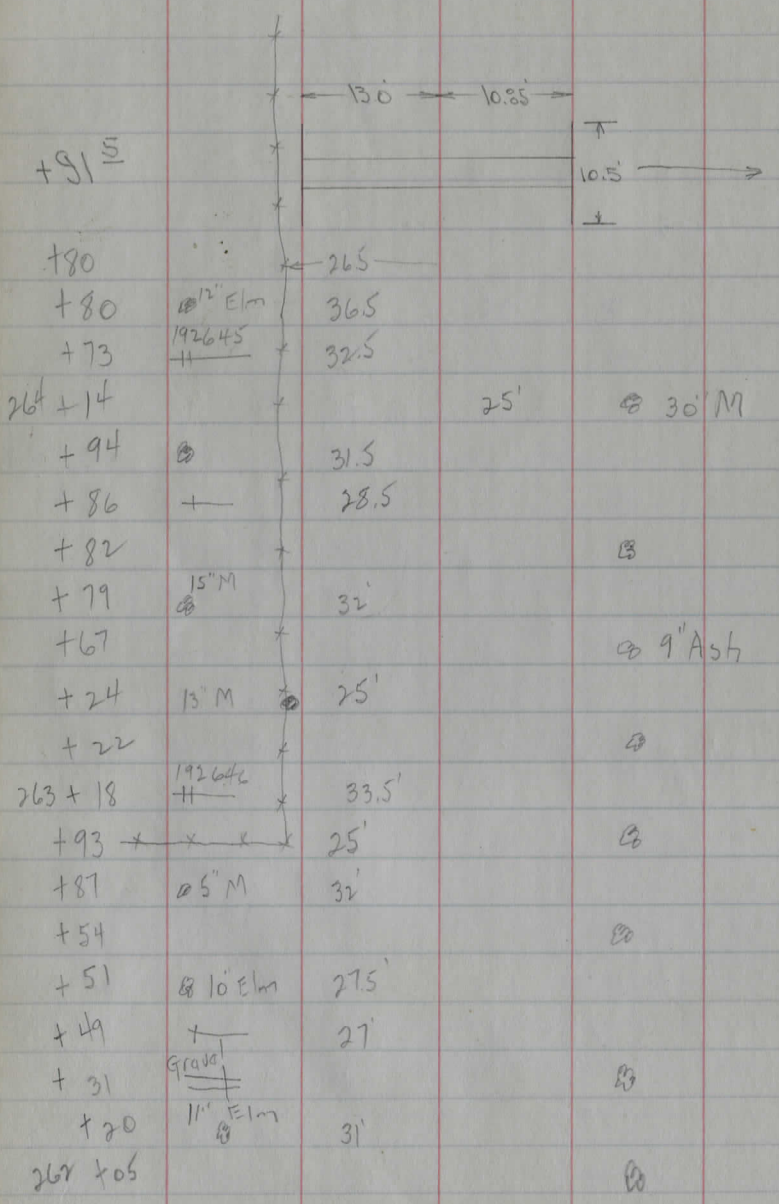 13.0' 10.85'
+91 5 10.5'
+80 26.5
+80 12" Elm 36.5
+73 192645 32.5
264 +14 25' 30" M
+94 31.5
+86 28.5
+82
+79 15" M 32'
+67 9" Ash
+24 13" M 25'
+22
263 + 18 192646 33.5'
+93 25'
+87 5" M 32'
+54
+51 10" Elm 27.5'
+49 27'
+31
+20 11" Elm 31'
262 +05